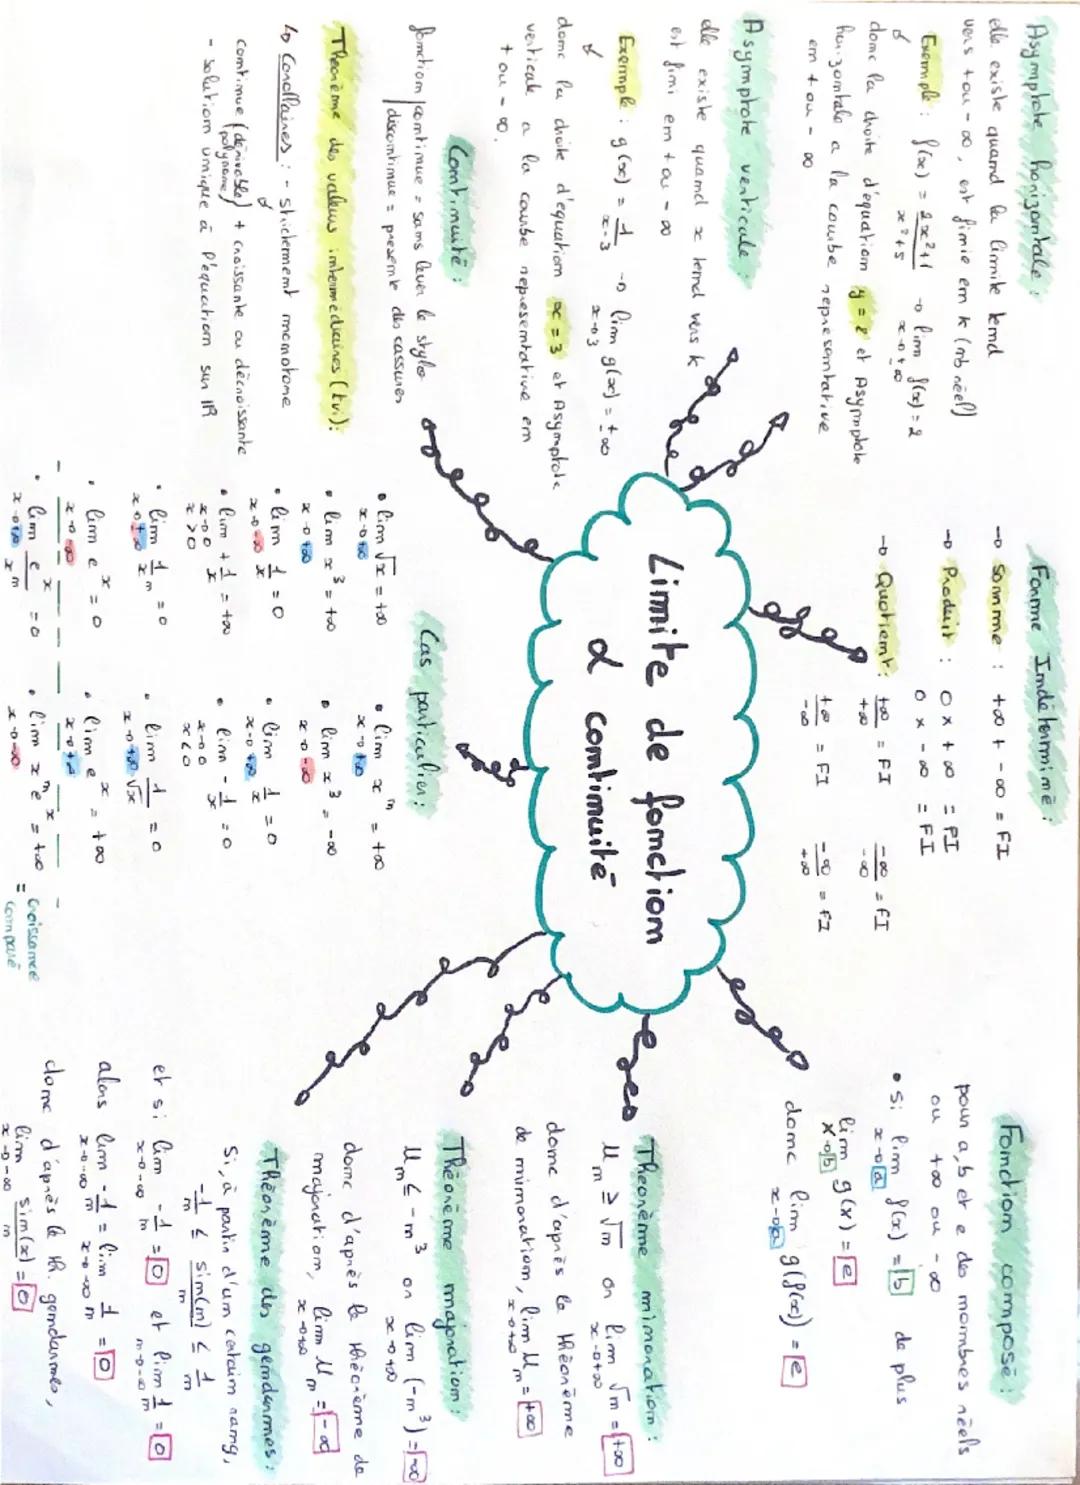 Limite de fonction
& continuité
Asymptote horizontale :
elle existe quand la limite tend
vers + ou - ∞, est finie en k (nb réel)
Exemple : f(x) = 2x²+1 / x²+5 → lim f(x) = 2
x→±∞
donc la droite d'équation y = 2 et Asymptote
horizontale a la courbe representative
en + ou - ∞
Asymptote verticale :
elle existe quand x tend vers k
est fini en + ou - ∞
Exemple : g(x) = 1 / x-3 → lim g(x) = ±∞
x→3
donc la droite d'équation x = 3 et Asymptote
verticale a la courbe representative en
+ ou - ∞.
Continuité :
fonction continue = sans lever le stylo
discontinue = presente des cassures
Théorème des valeurs intermediaires (tvi) :
↳ Corollaires : - strictement monotone
continue (dérivable) + croissante ou décroissante
polynome
- solution unique à l'équation sur IR
Forme Indéterminé :
→ somme : +∞ + -∞ = FI
→ Produit : 0 x +∞ = FI
0 x -∞ = FI
→ Quotient : +∞ / +∞ = FI   -∞ / -∞ = FI
+∞ / -∞ = FI   -∞ / +∞ = FI
Cas particulier :
• lim √x = +∞   • lim xⁿ = +∞
x→+∞   x→+∞
• lim x³ = +∞   • lim x³ = -∞
x→+∞   x→-∞
• lim 1/x = 0   • lim 1/x = 0
x→-∞   x→+∞
• lim + 1/x = +∞   • lim - 1/x = 0
x→0   x→0
x>0   x<0
• lim 1/xⁿ = 0   • lim 1/√x = 0
x→+∞   x→+∞
• lim eˣ = 0   • lim eˣ = +∞
x→-∞   x→+∞
• lim eˣ/xⁿ = 0   • lim xⁿeˣ = +∞
x→+∞   x→-∞
= croissance
comparé
Fonction composé :
pour a, b et e des nombres réels
ou +∞ ou -∞
• Si lim f(x) = b de plus
x→a
lim g(x) = e
X→b
donc lim g(f(x)) = e
x→a
Théorème minoration :
Uₙ ≥ √n or lim √n = +∞
x→+∞
donc d'après le théorème
de minoration, lim Uₙ = +∞
x→+∞
Théorème majoration :
Uₙ ≤ -n³ or lim (-n³) = -∞
x→+∞
donc d'après le théorème de
majoration, lim Uₙ = -∞
x→+∞
Théorème des gendarmes :
Si, à partir d'un certain rang,
-1/n ≤ sin(n)/n ≤ 1/n
et si lim -1/n = 0 et lim 1/n = 0
x→-∞   n→-∞
alors lim -1/n = lim 1/n = 0
x→-∞   x→-∞
donc d'après le th. gendarmes,
lim sin(x)/n = 0
x→-∞